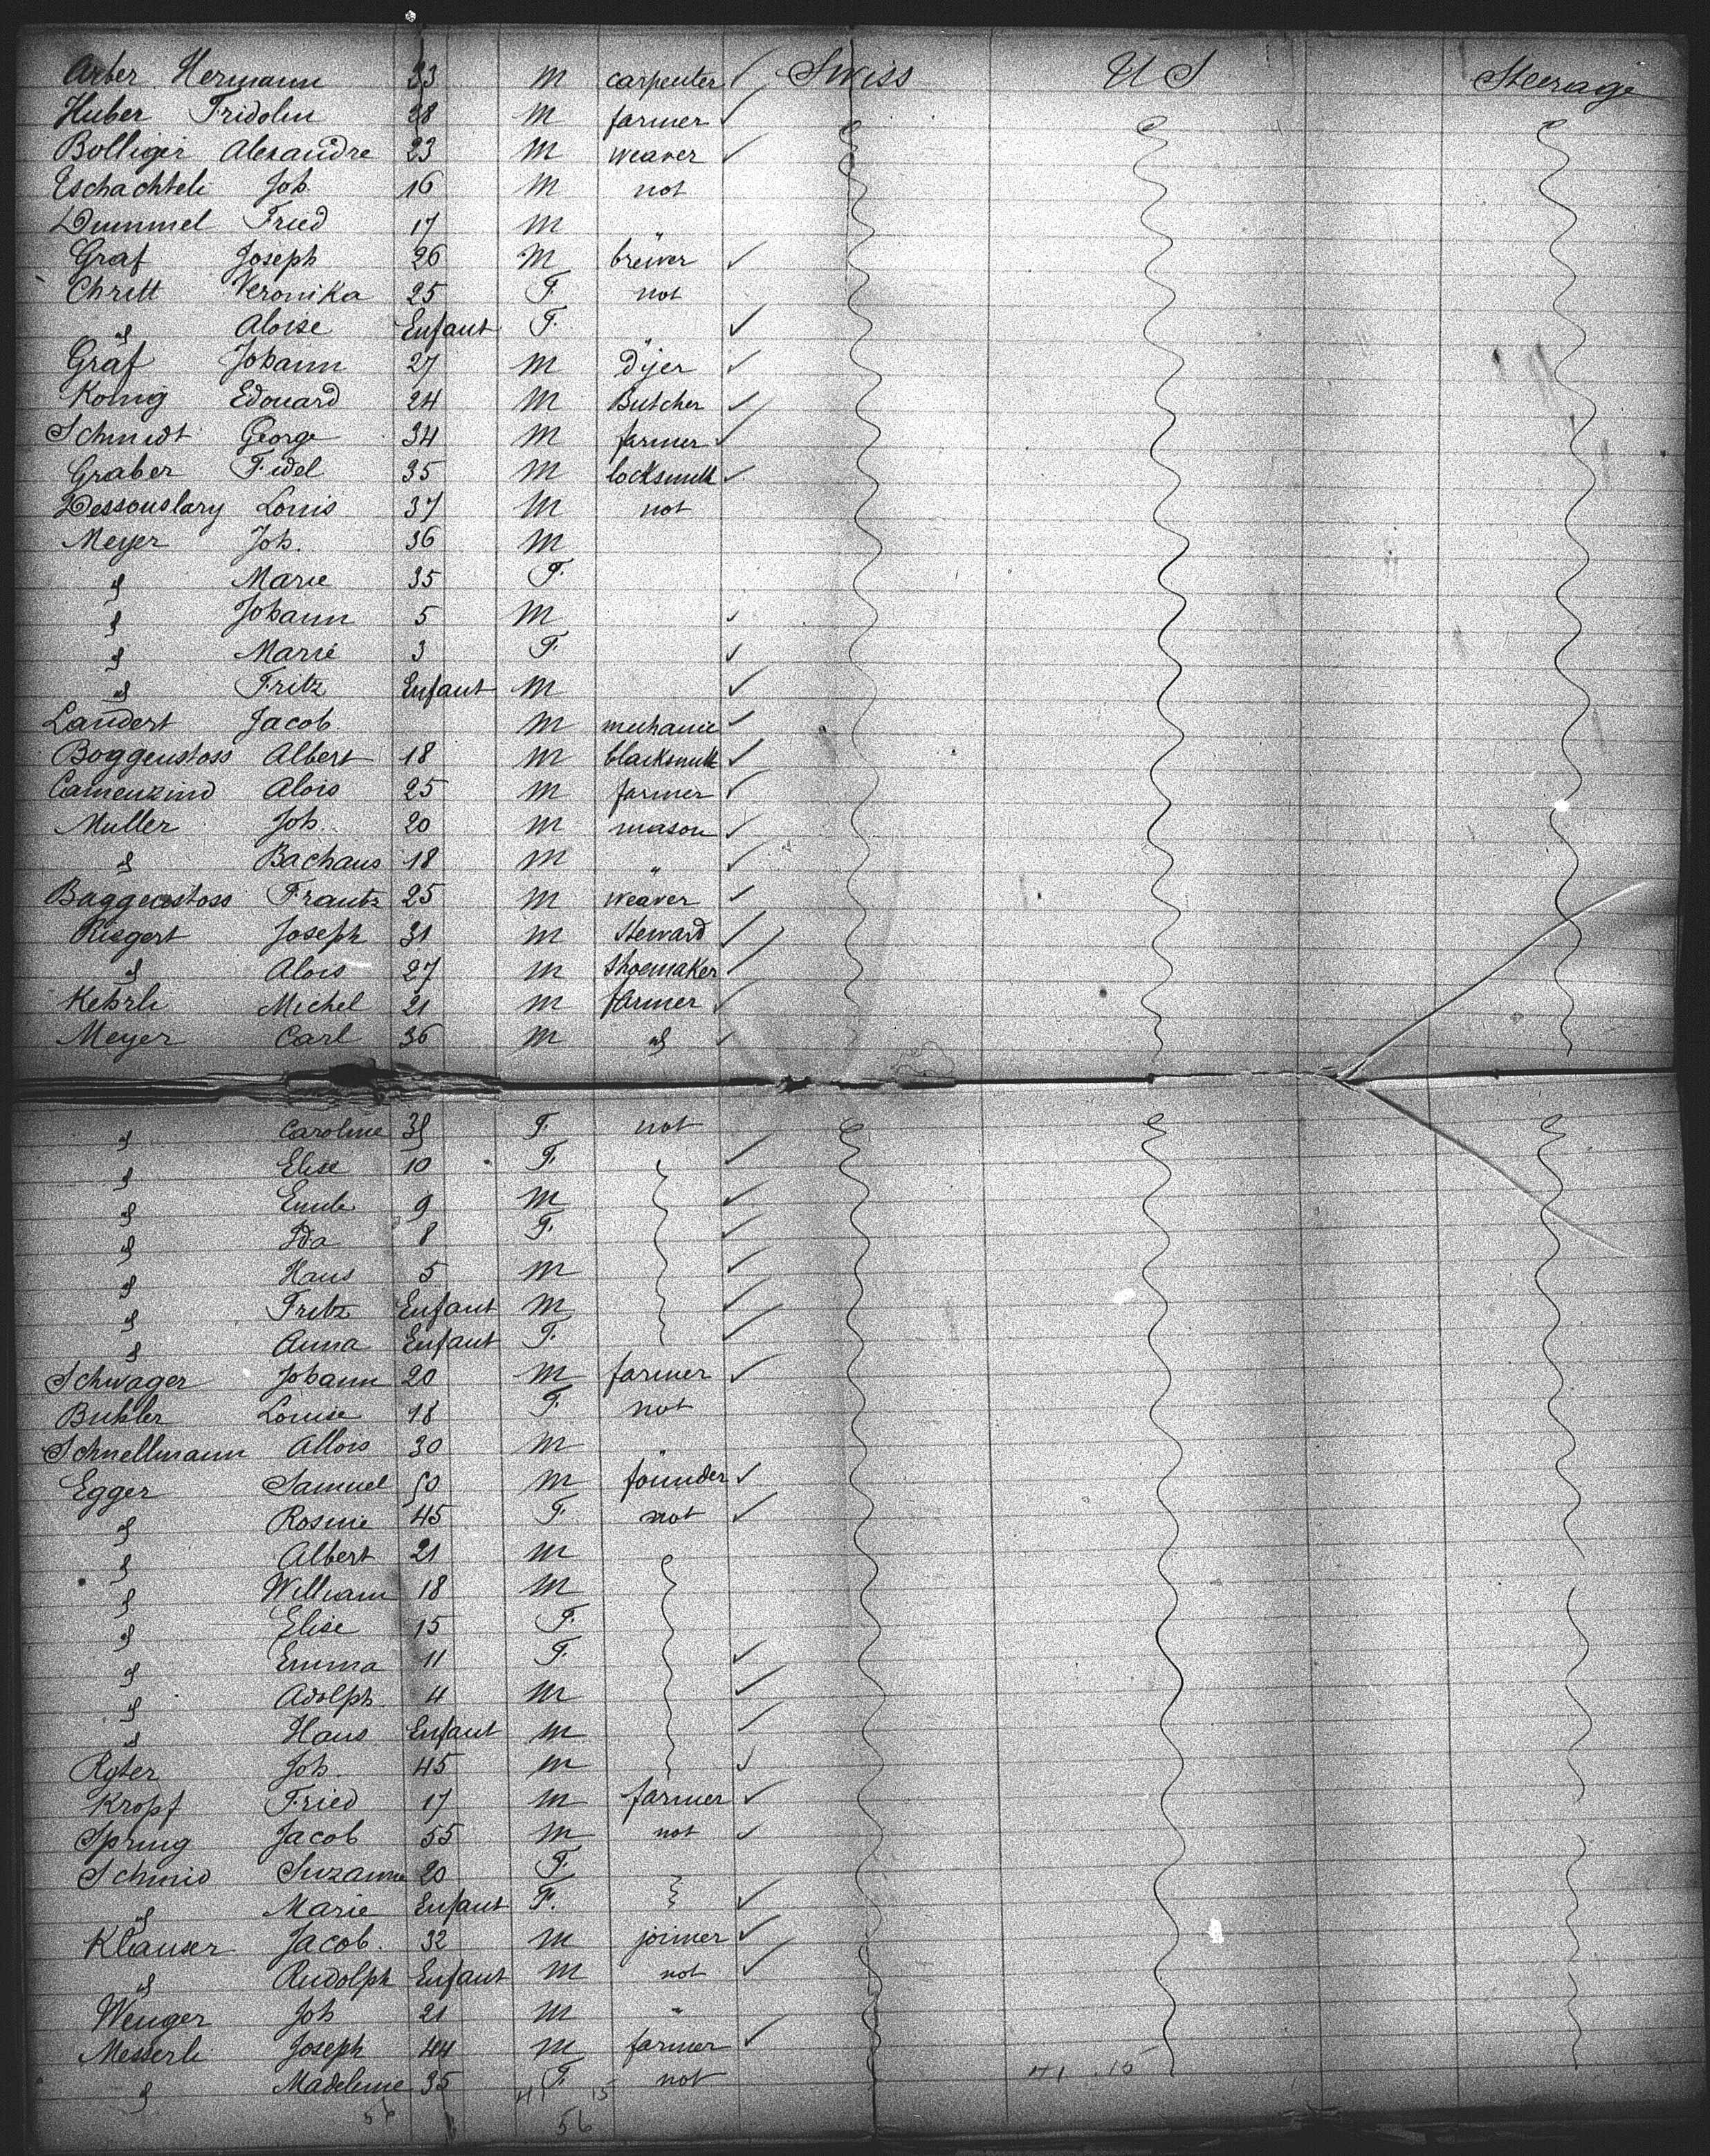 Arber Hermann 23 M carpenter Swiss US Steerage
Huber Fridolin 28 M farmer
Bolliger Alexandre 23 M weaver
Tschachteli Joh. 16 M not
Dummel Fried 17 M "
Graf Joseph 26 M brewer
Chrett Veronika 25 F. not
" Aloise Enfant F. "
Graf Johann 27 M Dijer
Konig Edouard 24 M Butcher
Schmidt George 34 M farmer
Graber Fidel 35 M locksmith
Dessouslavy Louis 37 M not
Meyer Joh. 36 M
" Marie 35 F.
" Johann 5 M
" Marie 3 F.
" Fritz Enfant M
Landert Jacob. M mechanic
Boggenstoss Albert 18 M blacksmith
Camenzind Alois 25 M farmer
Muller Joh. 20 M mason
" Bachaus 18 M "
Baggenstoss Frantz 25 M weaver
Risgert Joseph 31 M Steward
" Alois 27 M Shoemaker
Kehrli Michel 21 M farmer
Meyer Carl 36 M "
" Caroline F. not
" Elise 10 F.
" Emile 9 M
" Ida 8 F.
" Hans 5 M
" Fritz Enfant M
" Anna Enfant F.
Schwager Johann 20 M farmer
Buhler Louise 18 F. not
Schnellmann Allois 30 M "
Egger Samuel 50 M founder
" Rosine 45 F. not
" Albert 21 M
" William 18 M
" Elise 15 F.
" Emma 11 F.
" Adolph 4 M
" Hans Enfant M
Ryter Joh. 45 M
Kropf Fried 17 M farmer
Spring Jacob 55 M not
Schmid Suzanne 20 F.
" Marie Enfant F.
Klauser Jacob. 32 M joiner
" Rudolph Enfant M not
Wenger Joh 21 M "
Messerli Joseph 44 M farmer
" Madeleine 35 F. not
41 15
41 15
56 56